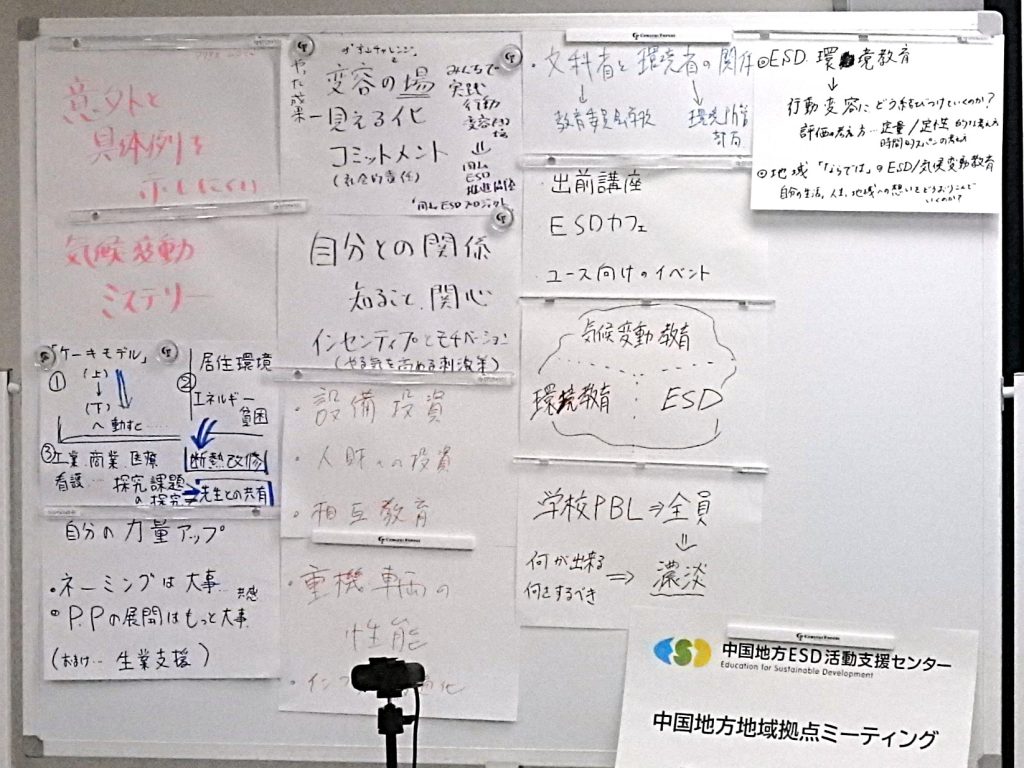 意外と
具体例を
示しにくい
気候変動
ミステリー
「ケーキモデル」
①
(上)
↓
(下)
へ動すと……
②
居住環境
エネルギー
貧困
断熱改修
③工業.商業.医療
看護…
探究課題
の探究
先生との共有
自分の力量アップ
・ネーミングは大事…共感
P.Pの展開はもっと大事
(おまけ… 生業支援)
やった成果
変容の場
見える化
コミットメント
(社会的責任)
みんなで
実践
行動
変容
岡山
ESD
推進
岡山ESDプロジェクト
自分との関係
知ること.関心
インセンティブとモチベーション
(やる気を高める刺激策)
・設備投資
・人財への投資
・相互教育
・重機車両の
性能
・文科省と環境省の関係
教育委員会/学校
環境
計画
・出前講座
ESDカフェ
・ユース向けのイベント
気候変動教育
環境教育
ESD
学校PBL⇒全員
⇓
何が出来る
何をするべき
⇒
濃淡
ESD.環境教育
↓
行動変容にどう結びつけていくのか?
評価の考え方…定量/定性的な考え方
時間的スパンの考え方
地域「ならでは」のESD/気候変動教育
自分の生活、人生、地域への想いをどうおりこんで
いくのか?
ESD
中国地方ESD活動支援センター
Education for Sustainable Development
中国地方地域拠点ミーティング